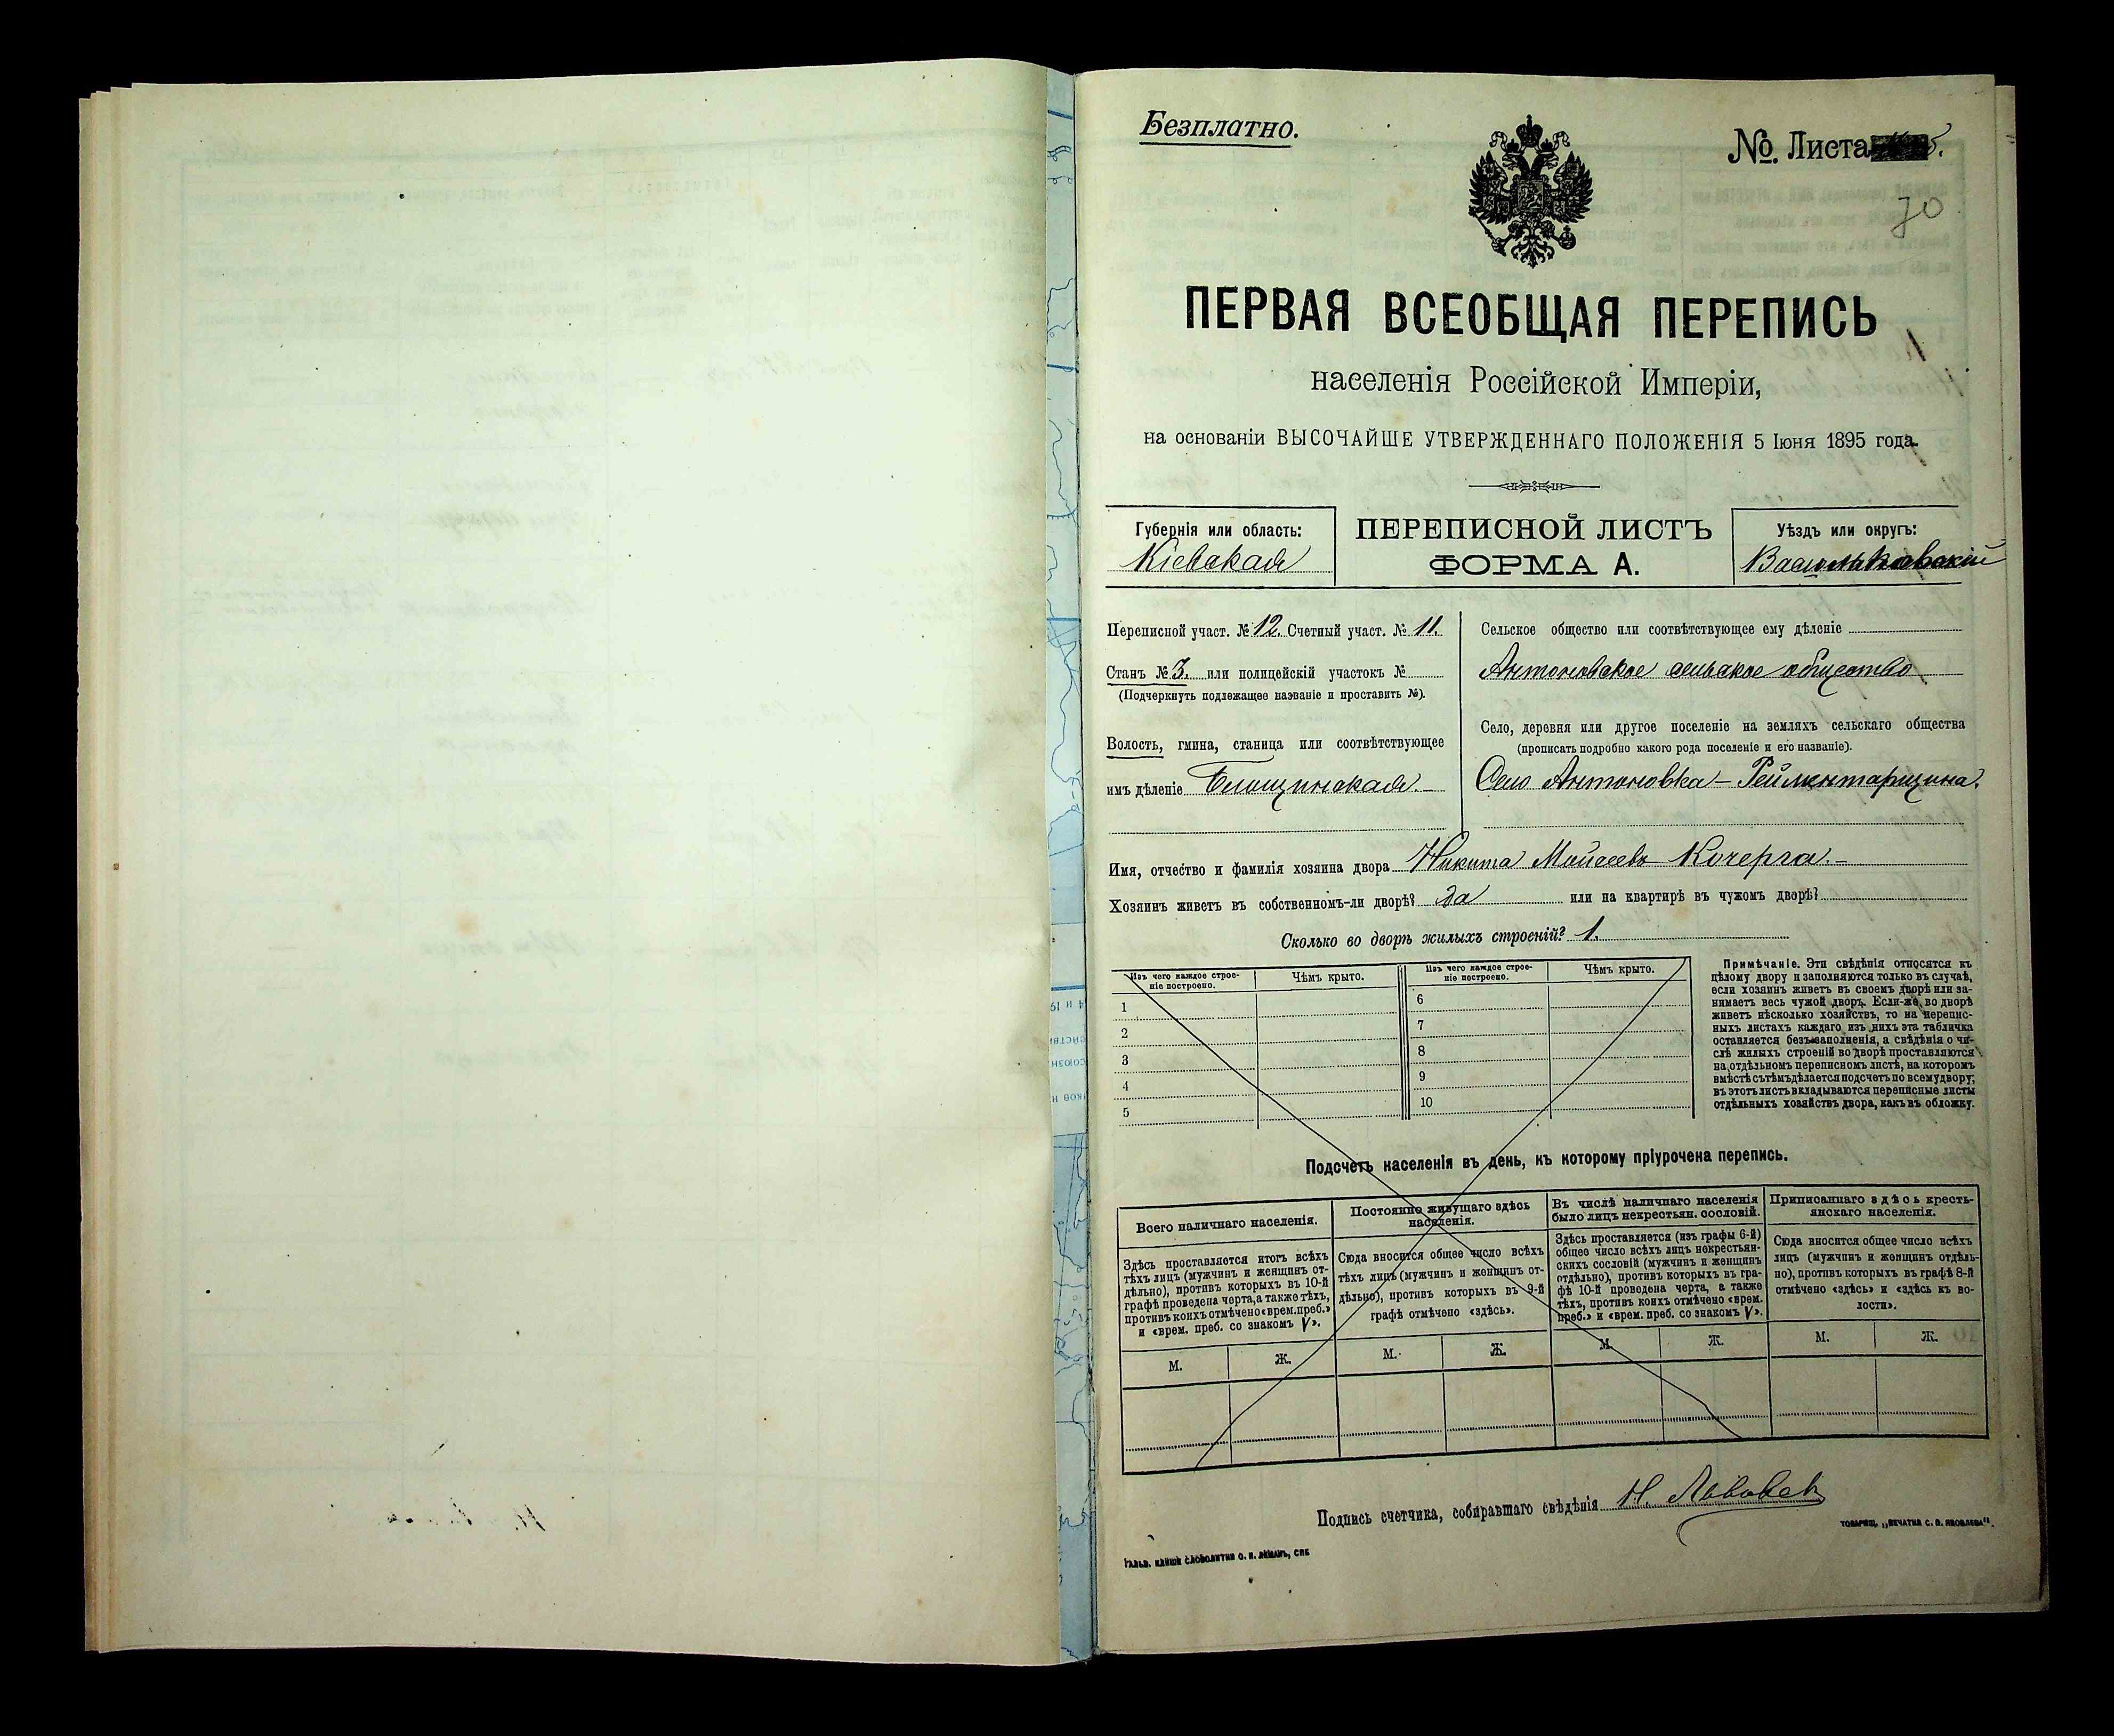 Безплатно.
№. Листа
70
ПЕРВАЯ ВСЕОБЩАЯ ПЕРЕПИСЬ
населенія Россійской Имперіи,
на основаніи ВЫСОЧАЙШЕ УТВЕРЖДЕННАГО ПОЛОЖЕНІЯ 5 Іюня 1895 года.
Губернія или область:
Кіевская
ПЕРЕПИСНОЙ ЛИСТЪ
ФОРМА А.
Уѣздъ или округъ:
Васильковскій
Переписной участ. № 12. Счетный участ. № 11.
Станъ № 3. или полицейскій участокъ №
(Подчеркнуть подлежащее названіе и проставить №).
Волость, гмина, станица или соотвѣтствующее
имъ дѣленіе
Сельское общество или соотвѣтствующее ему дѣленіе
Антоновское сельское общество
Село, деревня или другое поселеніе на земляхъ сельскаго общества
(прописать подробно какого рода поселеніе и его названіе).
Село Антоновка - Рейментарщина.
Имя, отчество и фамилія хозяина двора Никита Мойсеевъ Кочерга.-
Хозяинъ живетъ въ собственномъ-ли дворѣ? да или на квартирѣ въ чужомъ дворѣ?
Сколько во дворѣ жилыхъ строеній? 1.
Изъ чего каждое строе-
ніе построено.
Чѣмъ крыто.
Изъ чего каждое строе-
ніе построено.
Чѣмъ крыто.
1
2
3
4
5
6
7
8
9
10
Примѣчаніе. Эти свѣдѣнія относятся къ
цѣлому двору и заполняются только въ случаѣ,
если хозяинъ живетъ въ своемъ дворѣ или за-
нимаетъ весь чужой дворъ. Если-же, во дворѣ
живетъ нѣсколько хозяйствъ, то на перепис-
ныхъ листахъ каждаго изъ нихъ эта табличка
оставляется безъ заполненія, а свѣдѣнія о чи-
слѣ жилыхъ строеній во дворѣ проставляются
на отдѣльномъ переписномъ листѣ, на которомъ
вмѣстѣ съ тѣмъ дѣлается подсчетъ по всему двору;
въ этотъ листъ вкладываются переписные листы
отдѣльныхъ хозяйствъ двора, какъ въ обложку.
Подсчетъ населенія въ день, къ которому пріурочена перепись.
Всего наличнаго населенія.
Здѣсь проставляется итогъ всѣхъ
тѣхъ лицъ (мужчинъ и женщинъ от-
дѣльно), противъ которыхъ въ 10-й
графѣ проведена черта, а также тѣхъ,
противъ коихъ отмѣчено «врем. преб.»
и «врем. преб. со знакомъ V».
М. Ж.
Постоянно живущаго здѣсь
населенія.
Сюда вносится общее число всѣхъ
тѣхъ лицъ (мужчинъ и женщинъ от-
дѣльно), противъ которыхъ въ 9-й
графѣ отмѣчено «здѣсь».
М. Ж.
Въ числѣ наличнаго населенія
было лицъ некрестьян. сословій.
Здѣсь проставляется (изъ графы 6-й)
общее число всѣхъ лицъ некрестьян-
скихъ сословій (мужчинъ и женщинъ
отдѣльно), противъ которыхъ въ гра-
фѣ 10-й проведена черта, а также
тѣхъ, противъ коихъ отмѣчено «врем.
преб.» и «врем. преб. со знакомъ V».
М. Ж.
Приписаннаго здѣсь кресть-
янскаго населенія.
Сюда вносится общее число всѣхъ
лицъ (мужчинъ и женщинъ отдѣль-
но), противъ которыхъ въ графѣ 8-й
отмѣчено «здѣсь» и «здѣсь къ во-
лости».
М. Ж.
Подпись счетчика, собиравшаго свѣдѣнія Н.
ТОВАРИЩ. „ПЕЧАТНЯ С. П. ЯКОВЛЕВА".
ГАЛЬВ. КЛИШЕ СЛОВОЛИТНИ О. И. ЛЕМАНЪ, СПБ